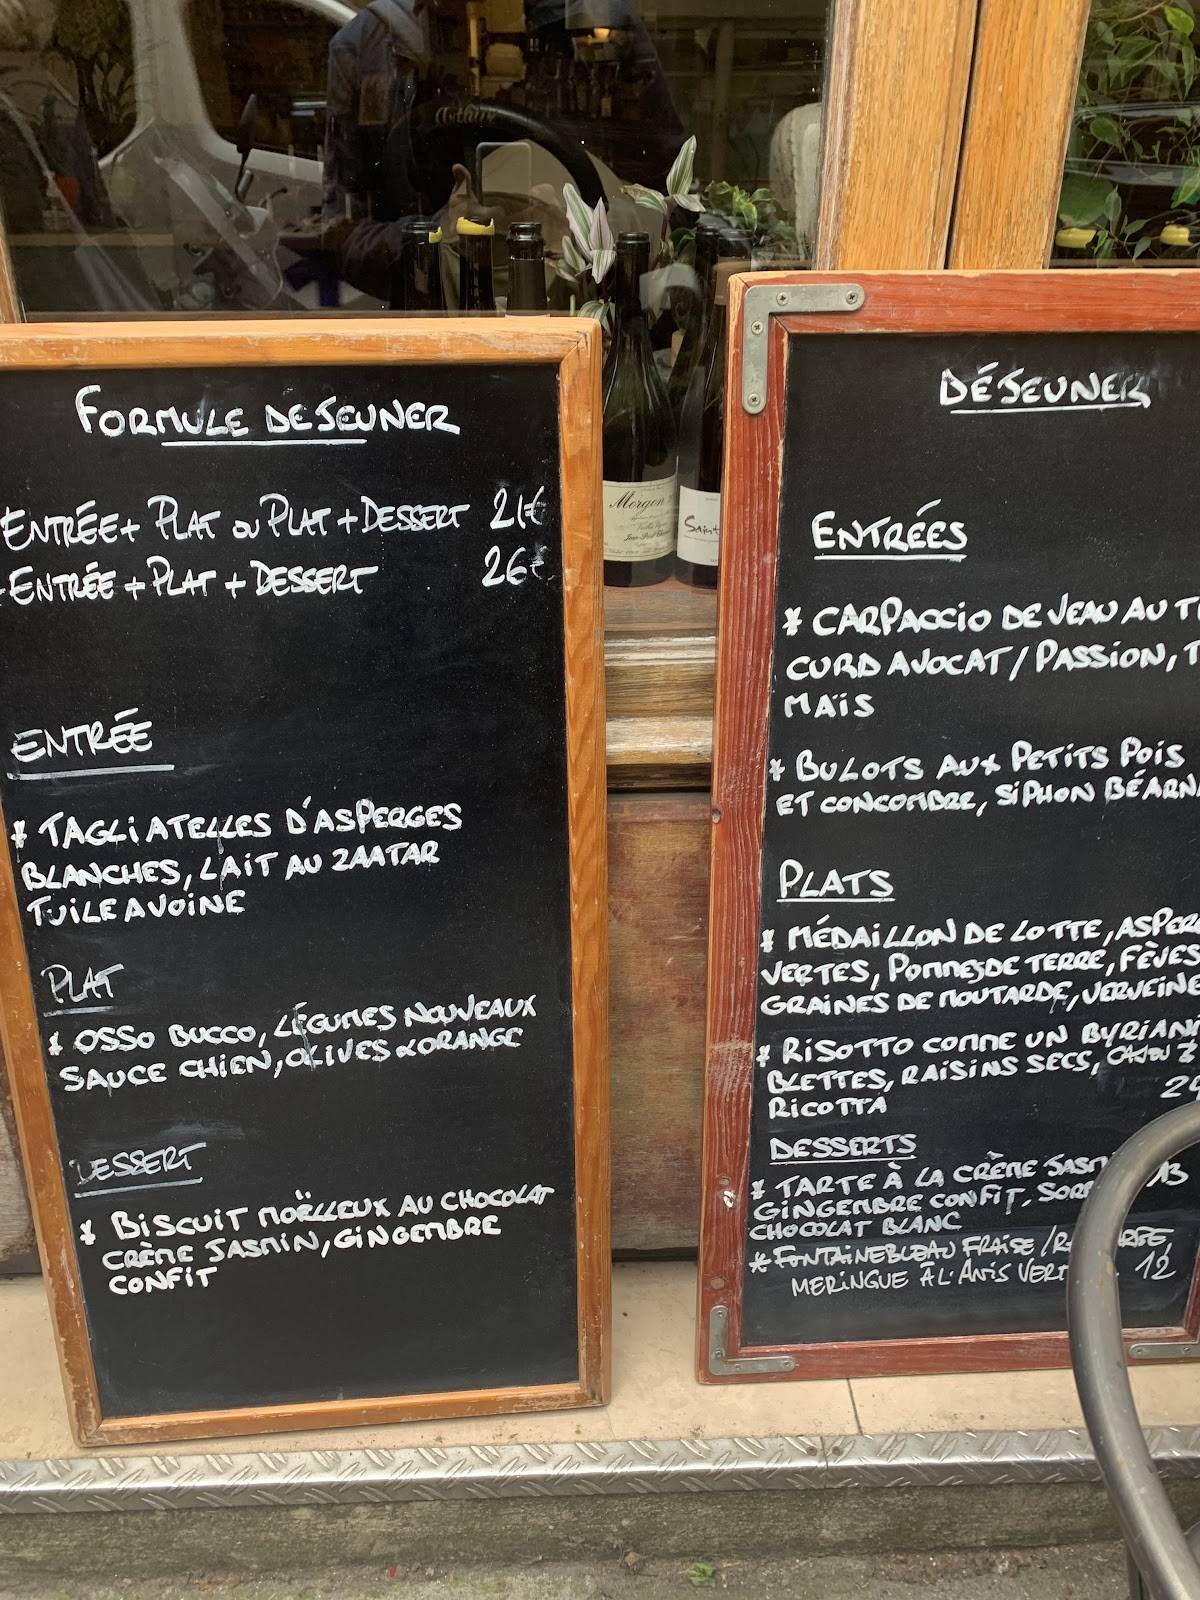 FORMULE DEJEUNER
ENTRÉE + PLAT OU PLAT + DESSERT 21€
-ENTRÉE + PLAT + DESSERT 26€
ENTRÉE
* TAGLIATELLES D'ASPERGES
BLANCHES, LAIT AU ZAATAR
TUILE AVOINE
PLAT
* OSSO BUCCO, LÉGUMES NOUVEAUX
SAUCE CHIEN, OLIVES & ORANGE
DESSERT
* BISCUIT MOËLLEUX AU CHOCOLAT
CRÈME JASMIN, GINGEMBRE
CONFIT
Morgon
Saint
DÉJEUNER
ENTRÉES
* CARPACCIO DE VEAU AU
CURD AVOCAT / PASSION,
MAÏS
* BULOTS AUX PETITS POIS
ET CONCOMBRE, SIPHON BÉARNA
PLATS
* MÉDAILLON DE LOTTE, ASPER
VERTES, POMMES DE TERRE, FÈVES
GRAINES DE MOUTARDE, VERVEINE
* RISOTTO COMME UN BYRIANI
BLETTES, RAISINS SECS, CAJOU &
RICOTTA
DESSERTS
* TARTE À LA CRÈME JASM 13
GINGEMBRE CONFIT, SORB
CHOCOLAT BLANC
* FONTAINEBLEAU FRAISE /
MERINGUE À L'ANIS VERT 12